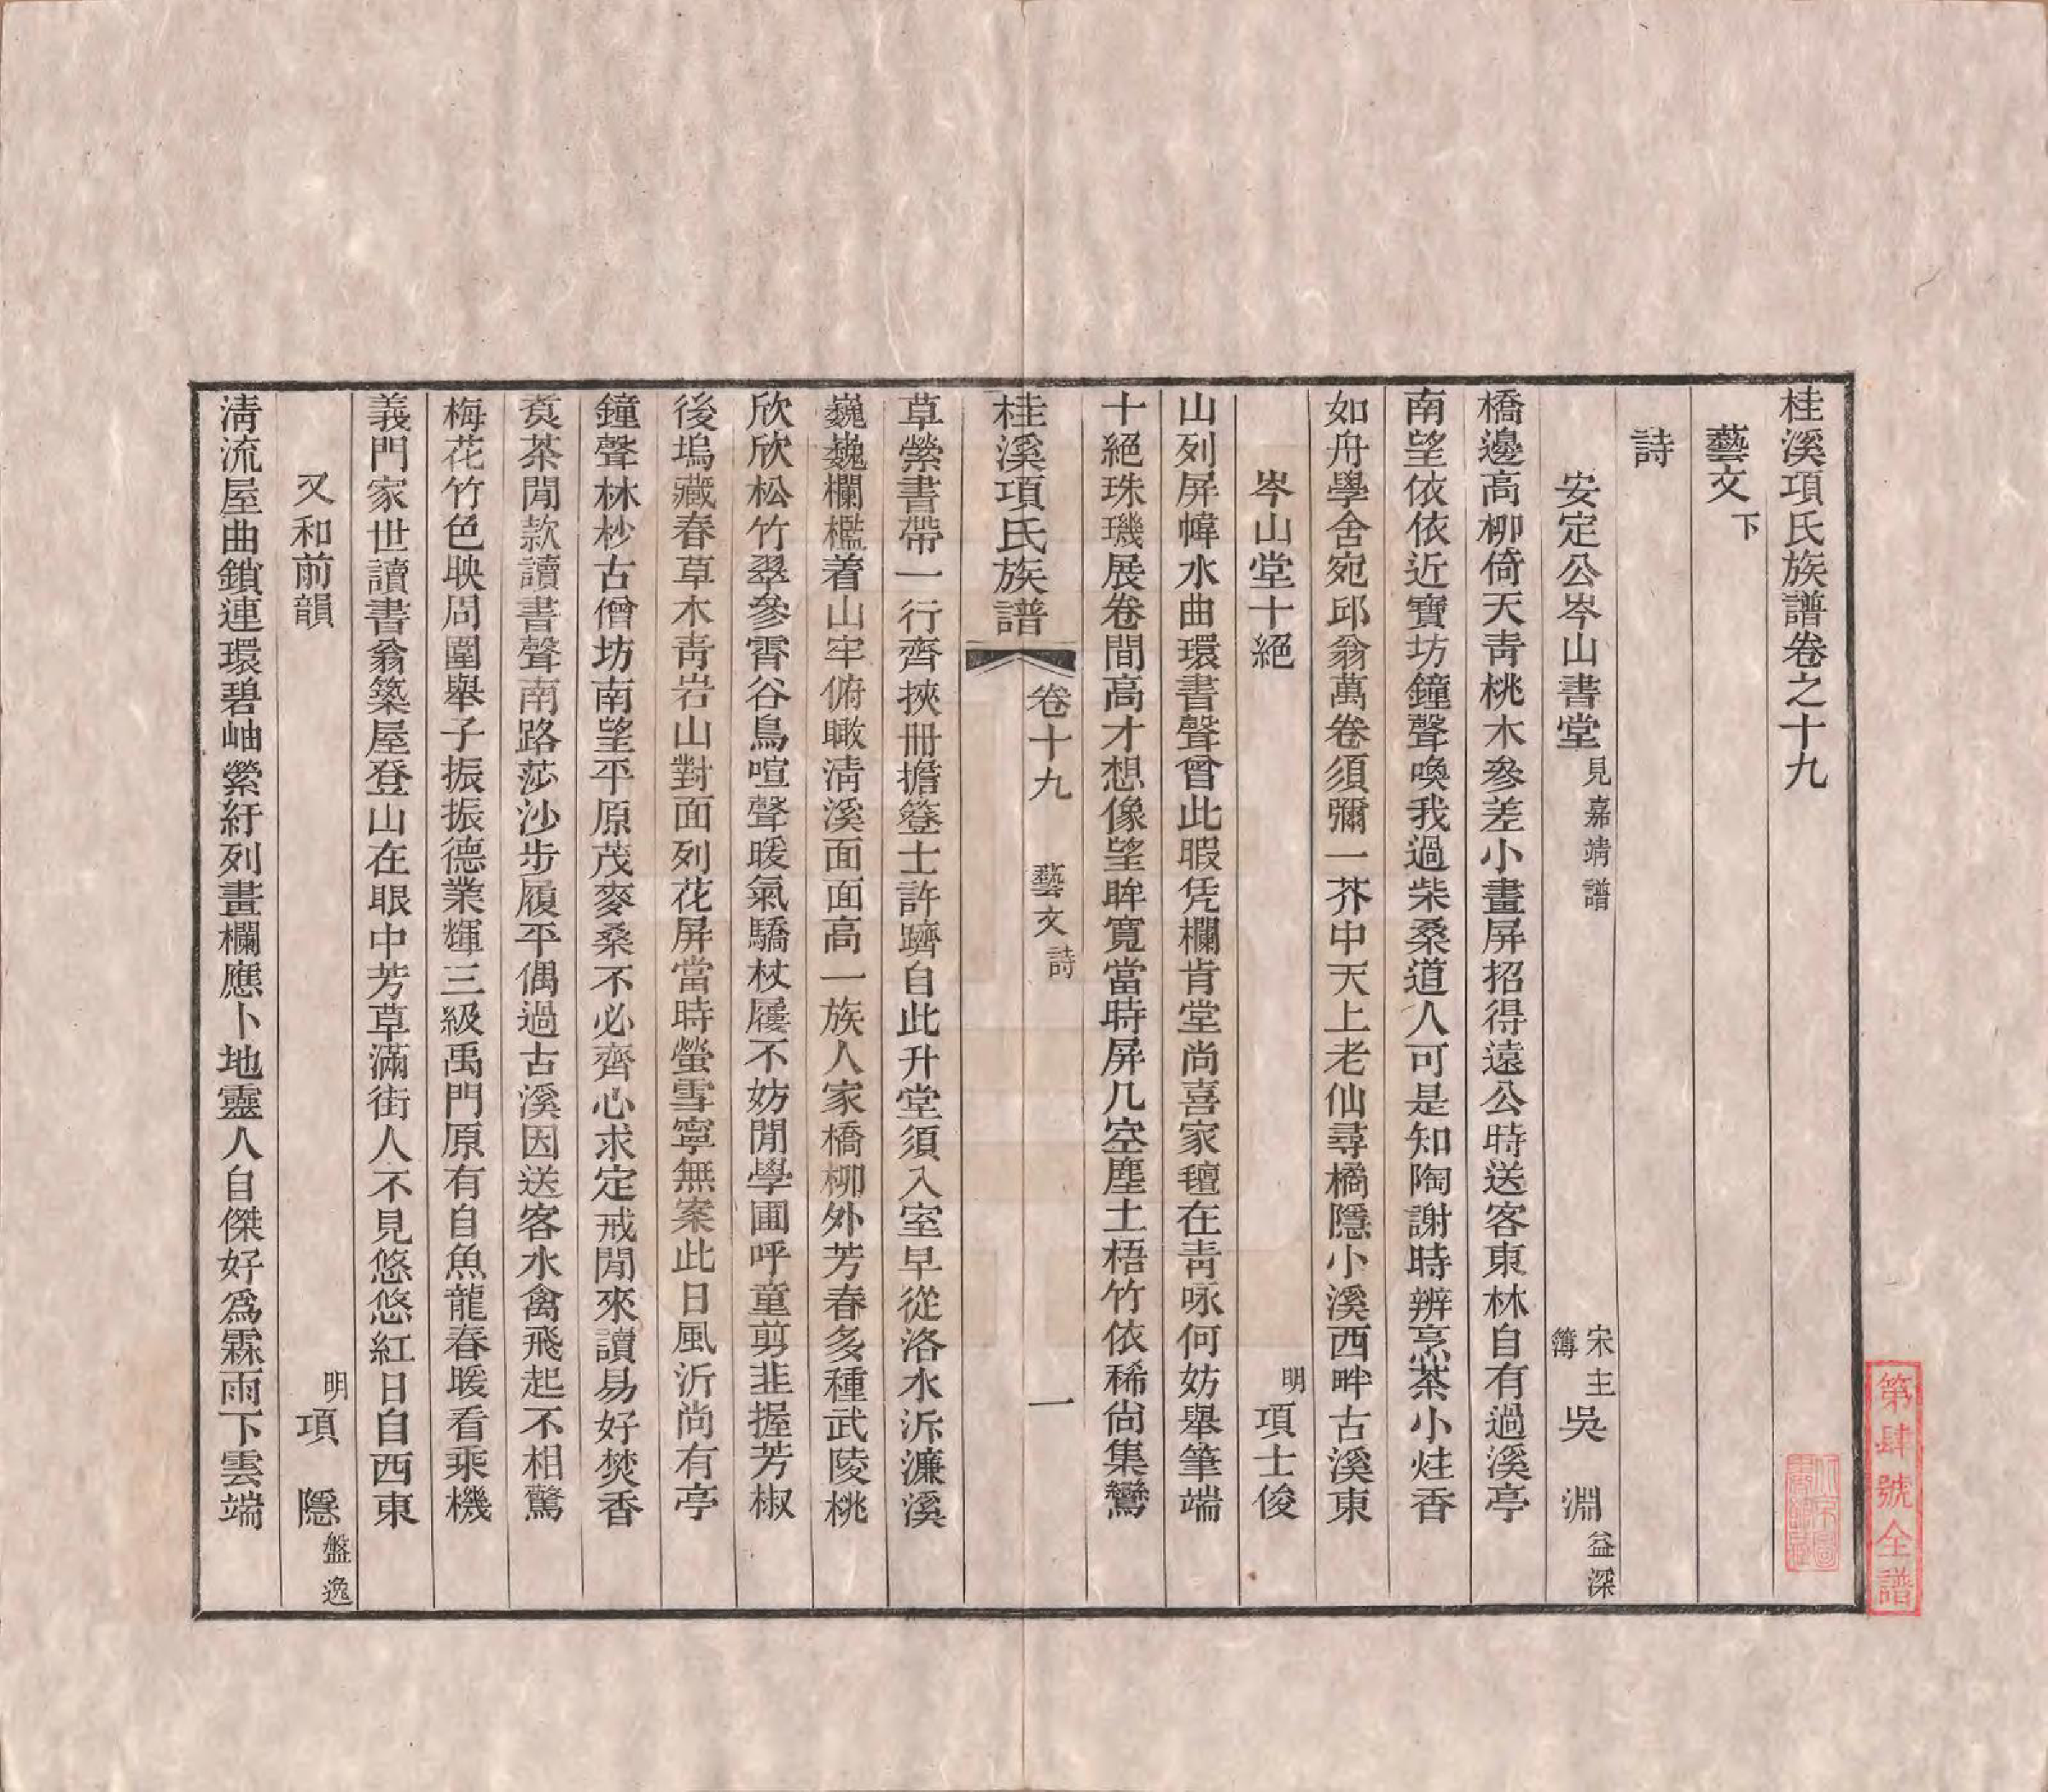 桂溪項氏族譜卷之十九
藝文下
詩
安定公岑山書堂見嘉靖譜 宋主簿吳 淵益深
橋邊高柳倚天靑桃木參差小畫屏招得遠公時送客東林自有過溪亭
南望依依近寶坊鐘聲喚我過柴桑道人可是知陶謝時辨烹茶小炷香
如舟學舍宛邱翁萬卷須彌一芥中天上老仙尋橘隱小溪西畔古溪東
岑山堂十絕 明項士俊
山列屏幃水曲環書聲曾此暇凭欄肯堂尚喜家氊在靑咏何妨舉筆端
十絕珠璣展卷間高才想像望眸寬當時屏几空塵土梧竹依稀尚集鸞
桂溪項氏族譜 卷十九 藝文詩 一
草縈書帶一行齊挾冊擔簦士許躋自此升堂須入室早從洛水泝濂溪
巍巍欄檻着山牢俯瞰淸溪面面高一族人家橋柳外芳春多種武陵桃
欣欣松竹翠參霄谷鳥喧聲暖氣驕杖屨不妨閒學圃呼童剪韭握芳椒
後塢藏春草木靑岩山對面列花屏當時螢雪寧無案此日風沂尚有亭
鐘聲林杪古僧坊南望平原茂麥桑不必齊心求定戒閒來讀易好焚香
煑茶閒款讀書聲南路莎沙步履平偶過古溪因送客水禽飛起不相驚
梅花竹色映周圍舉子振振德業輝三級禹門原有自魚龍春暖看乘機
義門家世讀書翁築屋登山在眼中芳草滿街人不見悠悠紅日自西東
又和前韻 明項 隱盤逸
淸流屋曲鎖連環碧岫縈紆列畫欄應卜地靈人自傑好爲霖雨下雲端
第肆號全譜